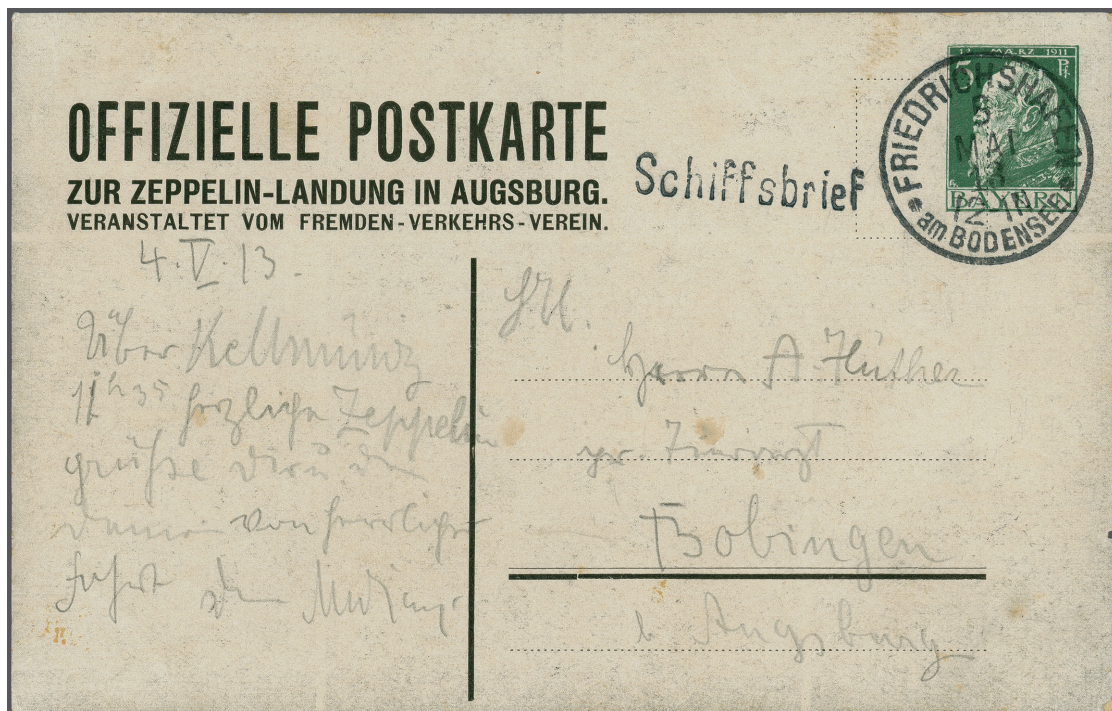 OFFIZIELLE POSTKARTE
ZUR ZEPPELIN-LANDUNG IN AUGSBURG.
VERANSTALTET VOM FREMDEN-VERKEHRS-VEREIN.
Schiffsbrief
12. MÄRZ 1911
5 Pf.
BAYERN
FRIEDRICHSHAFEN
5
MAI
13
am BODENSEE
4.V.13.
Über Kellmünz
11h35 herzliche Zeppelin
grüße Dir u. den
Deinen von herrlicher
Fahrt
Herrn A. Hüther
Bobingen
b. Augsburg